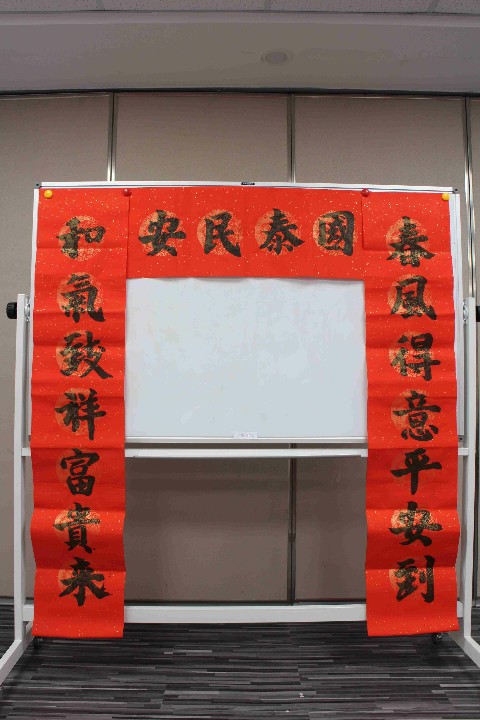 國泰民安
春風得意平安到
和氣致祥富貴來